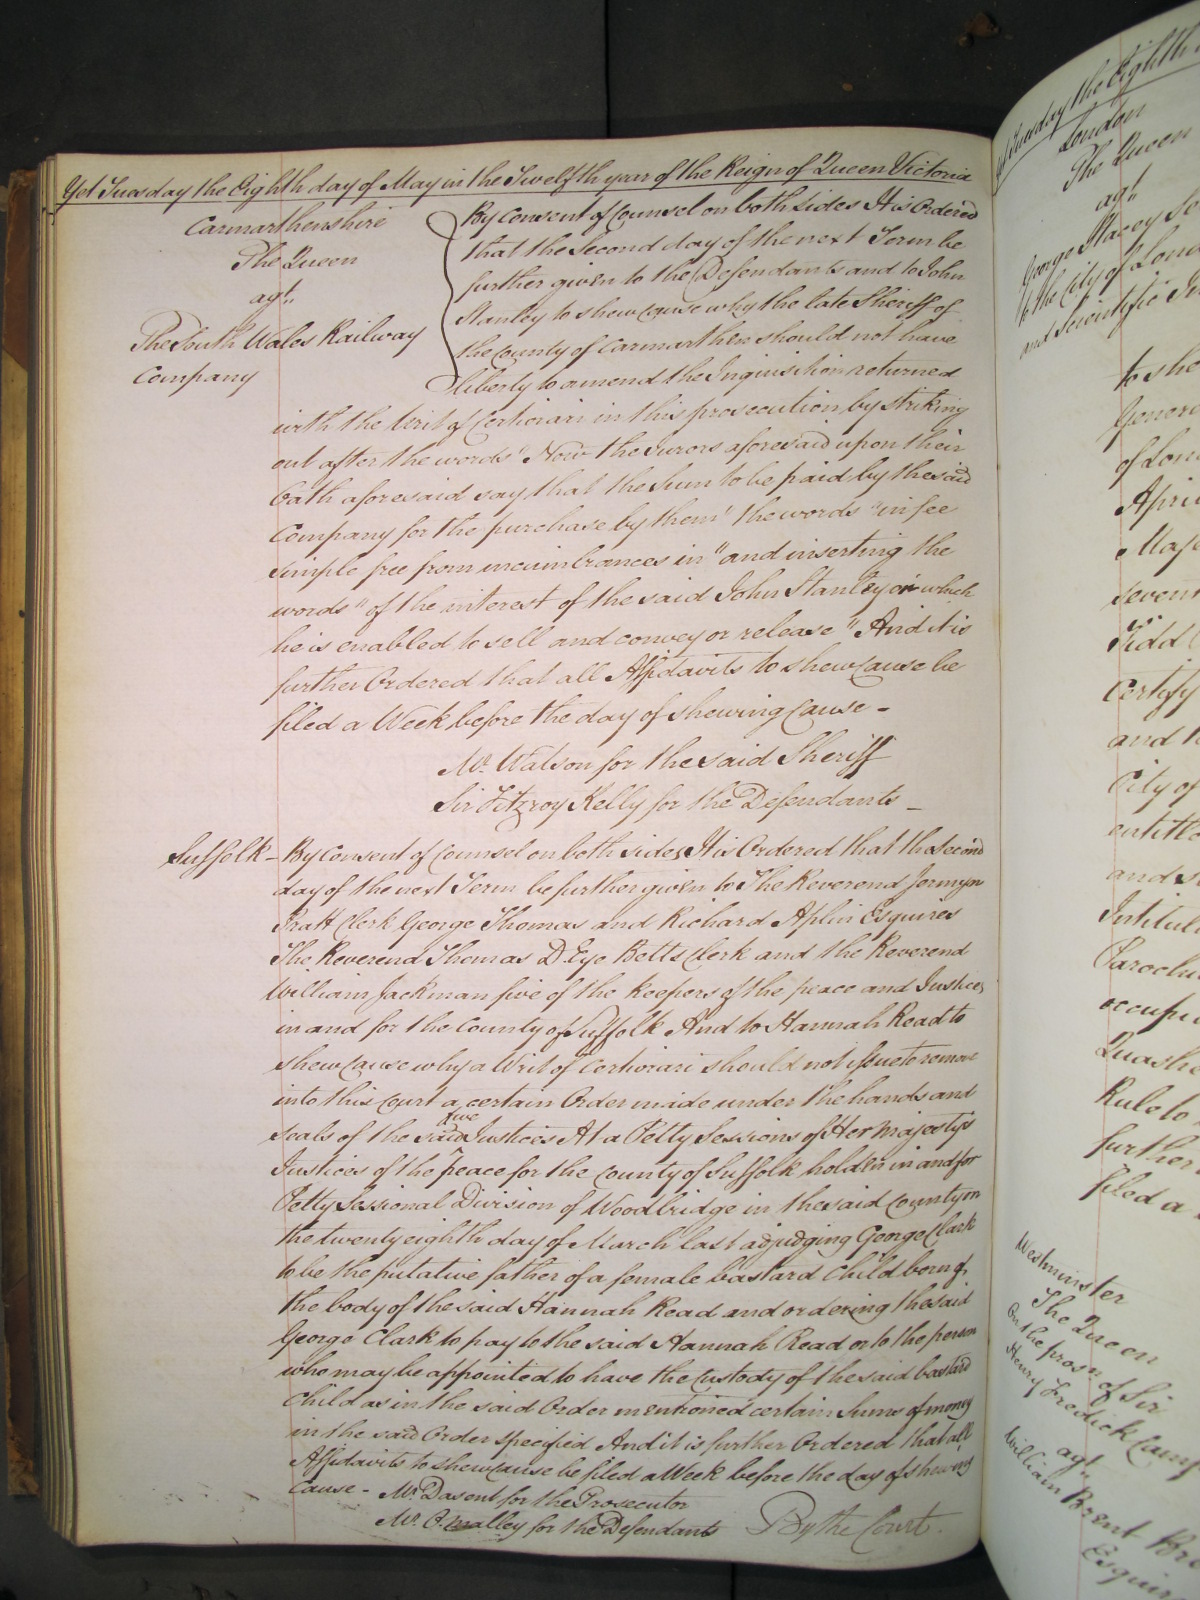 Yet Tuesday the Eighth day of May in the Twelfth year of the Reign of Queen Victoria
Carmarthenshire
The Queen
agt.
The South Wales Railway
Company
By Consent of Counsel on both sides It is Ordered
that the Second day of the next Term be
further given to the Defendants and to John
Stanley to shew cause why the late Sheriff of
the County of Carmarthen should not have
liberty to amend the Inquisition returned
with the Writ of Certiorari in this prosecution by striking
out after the words "Now the Jurors aforesaid upon their
Oath aforesaid say that the Sum to be paid by the said
Company for the purchase by them" the words "in fee
simple free from incumbrances in" and inserting the
words "of the interest of the said John Stanley or which
he is enabled to sell and convey or release" And it is
further Ordered that all Affidavits to shew cause be
filed a Week before the day of shewing cause -
Mr. Watson for the said Sheriff
Sir Fitzroy Kelly for the Defendants -
Suffolk - By Consent of Counsel on both sides It is Ordered that the second
day of the next Term be further given to The Reverend Jermyn
Pratt Clerk George Thomas and Richard Aplin Esquires
The Reverend Thomas D'Eye Betts Clerk and the Reverend
William Jackman five of the keepers of the peace and Justices
in and for the County of Suffolk And to Hannah Read to
shew cause why a Writ of Certiorari should not issue to remove
into this Court a certain Order made under the hands and
five
Seals of the said Justices At a Petty Sessions of Her Majesty's
Justices of the peace for the County of Suffolk holden in and for
Petty Sessional Division of Woodbridge in the said County on
the twenty eighth day of March last adjudging George Clark
to be the putative father of a female bastard child born of
the body of the said Hannah Read and ordering the said
George Clark to pay to the said Hannah Read or to the person
who may be appointed to have the Custody of the said bastard
child as in the said Order mentioned certain Sums of money
in the said Order specified And it is further Ordered that all
Affidavits to shew cause be filed a Week before the day of shewing
Cause - Mr. Dasent for the Prosecutor
Mr. O.malley for the Defendants By the Court.
Tuesday the Eighth
London
The Queen
agt.
George Stacey
to the City of London
and Scientific
to she
Genera
of Lon
April
Maj
seven
Kidd
Certify
and
City of
entitle
and
Intitul
Parochi
occupi
Quashe
Rule to
further
filed a
Westminster
The Queen
On the prosn of Sir
Henry Fredick
agt.
William Brent
Esquire